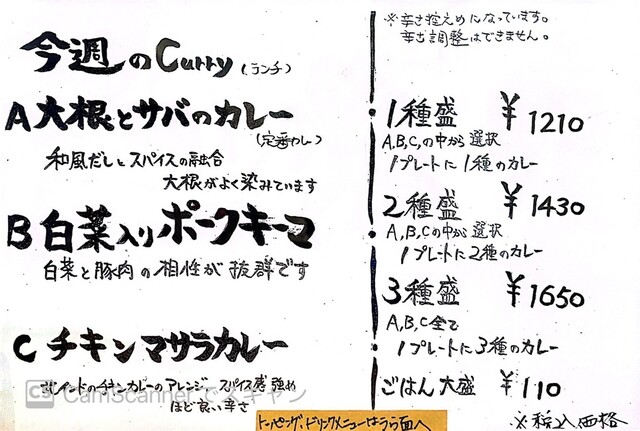 今週のCurry(ランチ)
A 大根とサバのカレー
(定番カレー)
和風だしとスパイスの融合
大根がよく染みています
B 白菜入りポークキーマ
白菜と豚肉の相性が抜群です
C チキンマサラカレー
南インドのチキンカレーのアレンジ、スパイス感強め
ほど良い辛さ
CS CamScanner でスキャン
※辛さ控えめになっています。
辛さ調整はできません。
1種盛 ¥1210
A,B,C,の中から選択
1プレートに1種のカレー
2種盛 ¥1430
A,B,Cの中から選択
1プレートに2種のカレー
3種盛 ¥1650
A,B,C全て
1プレートに3種のカレー
ごはん大盛 ¥110
※税込価格
トッピング、ドリンクメニューはうら面へ